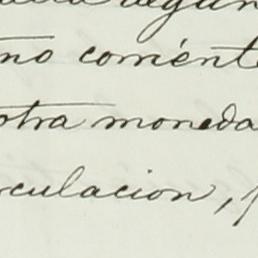 no comente
otra moneda
rculacion,